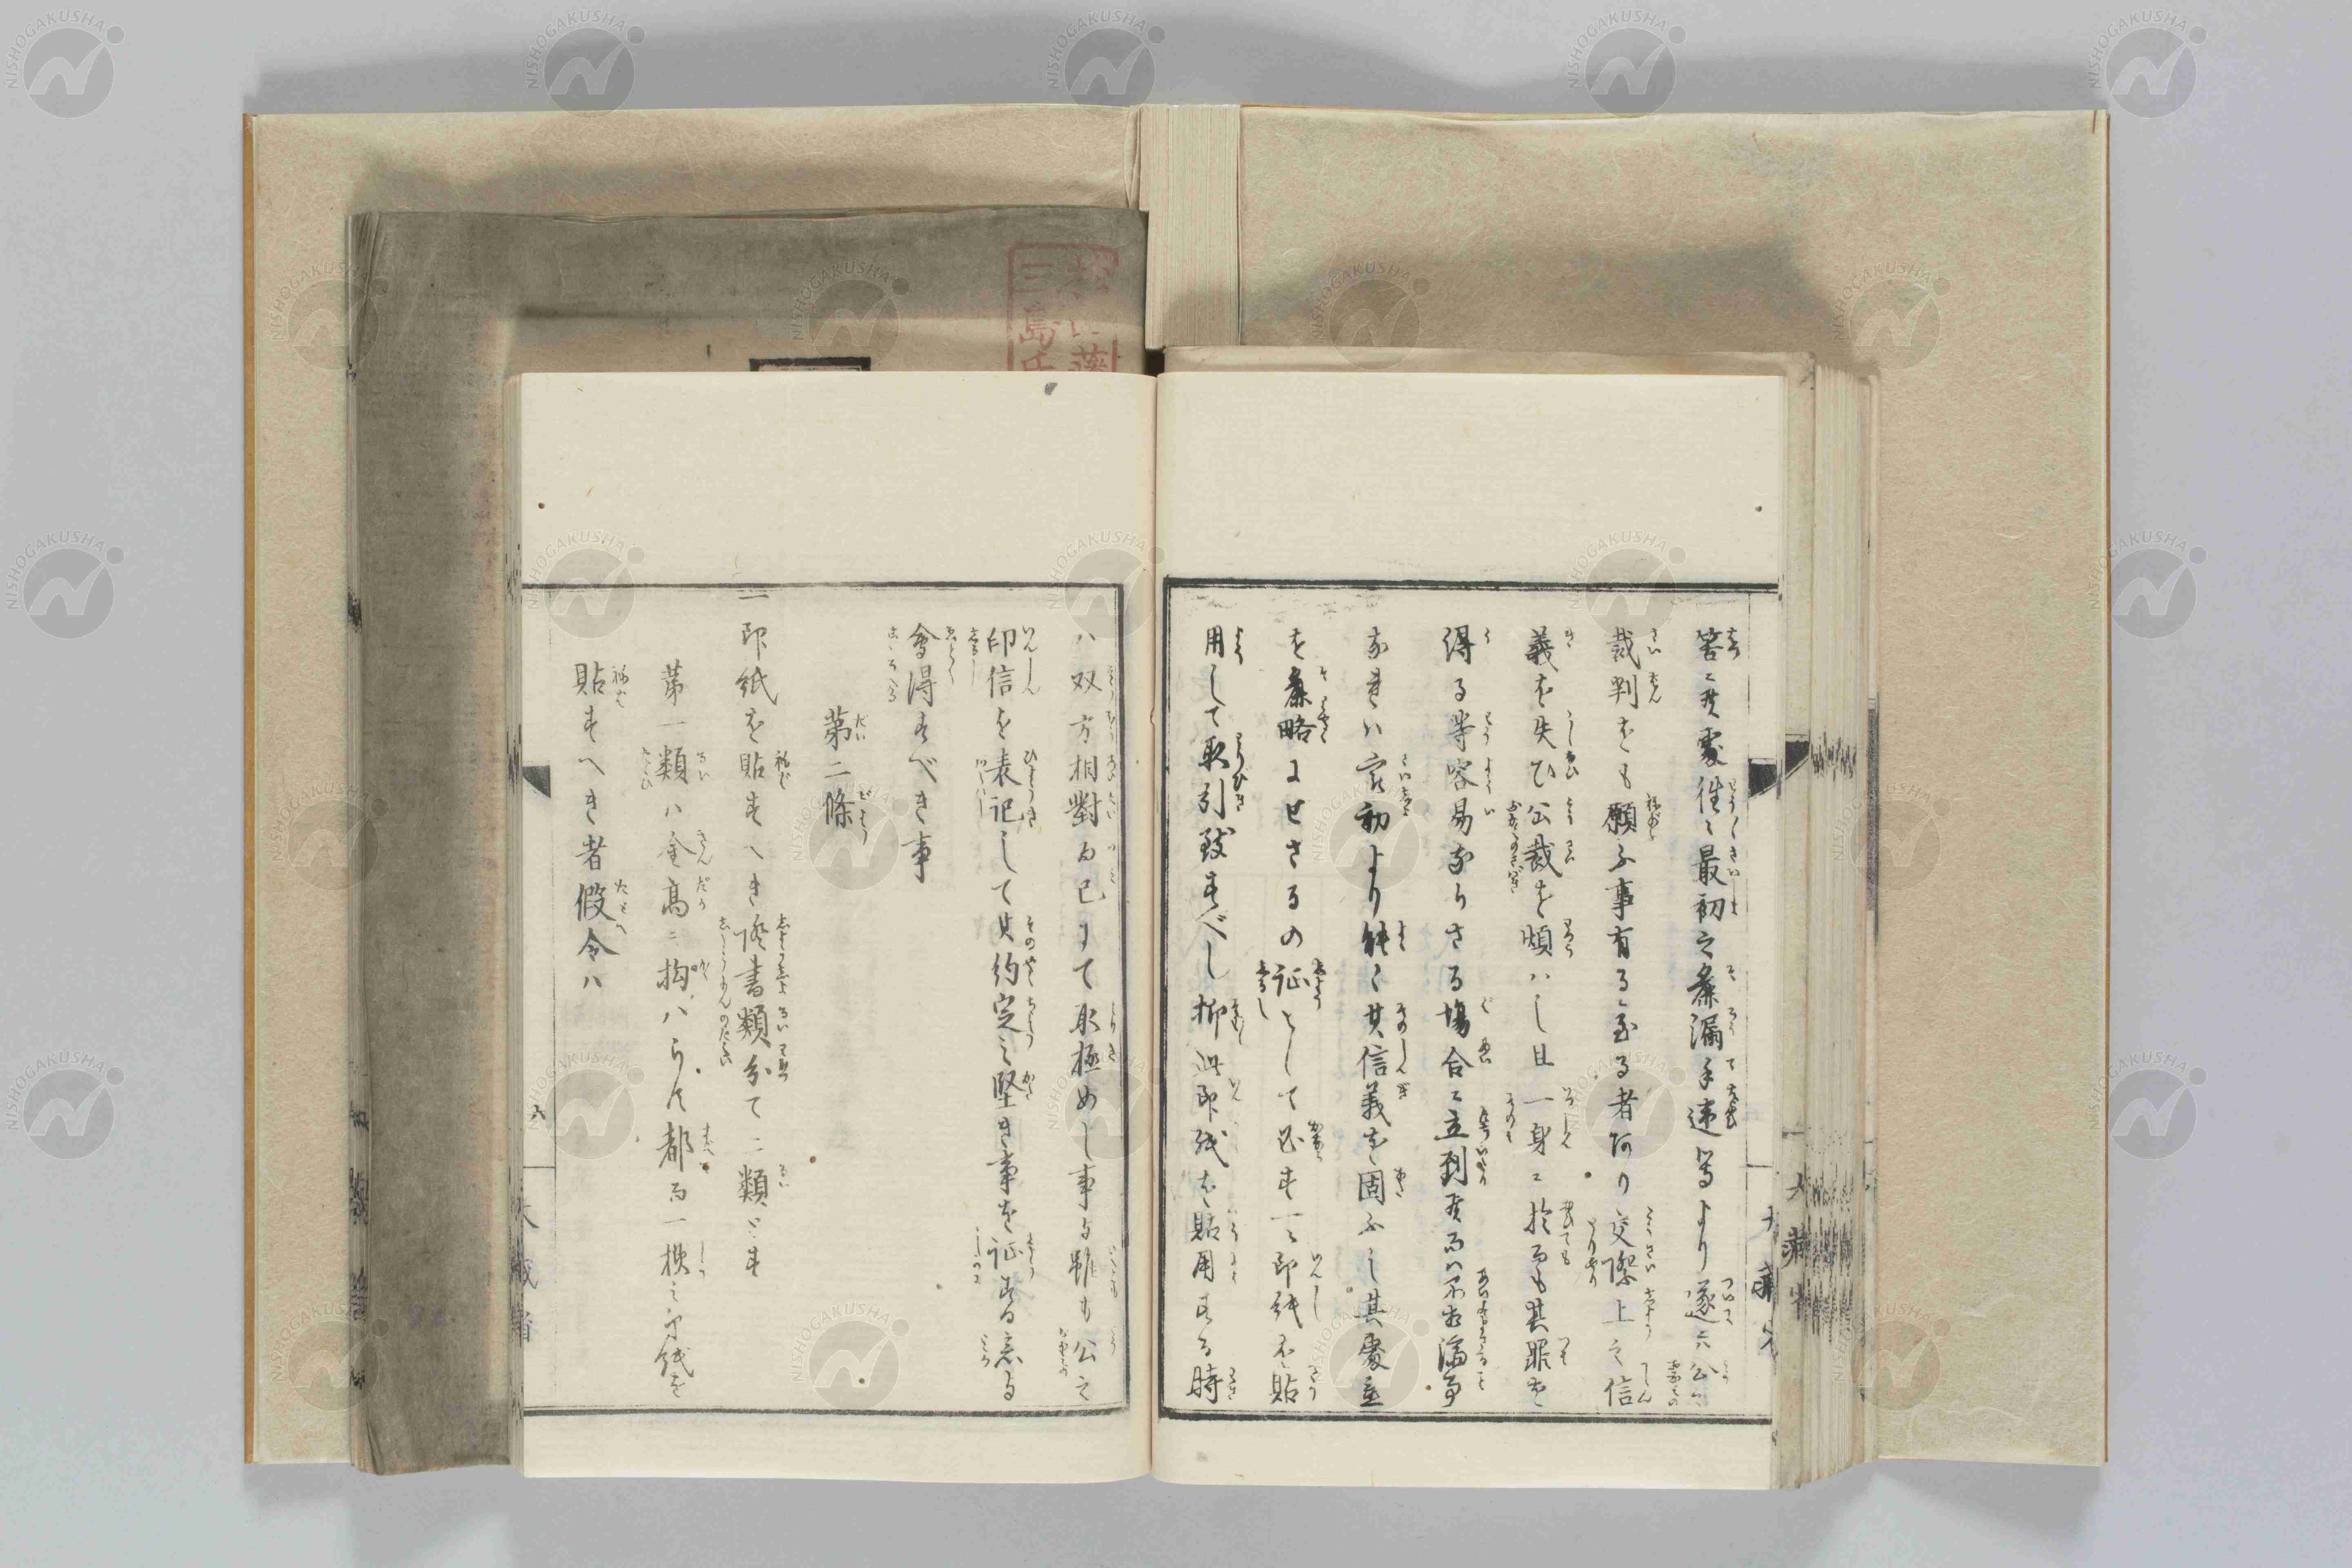 筈に候處往々最初之麁漏手違等より遂に公之
裁判をも願ふ事有るに至る者有り交際上之信
義を失ひ公裁を煩ハし且一身に於而も其罪を
得る等容易ならさる場合に立到候而ハ不相濟事
なれハ最初より能く其信義を固ふし其處置
を麁略にせさるの証として必す一之印紙を貼
用して取引致すべし抑此印紙を貼用する時
ハ双方相對而已にて取極めし事と雖も公之
印信を表記して其約定之堅き事を証する意と
會得すべき事
第二條
一印紙を貼すへき證書類分て二類とす
第一類ハ金高に拘ハらす都而一様之印紙を
貼すへき者假令ハ
六
大藏省
大藏省
NISHOGAKUSHA